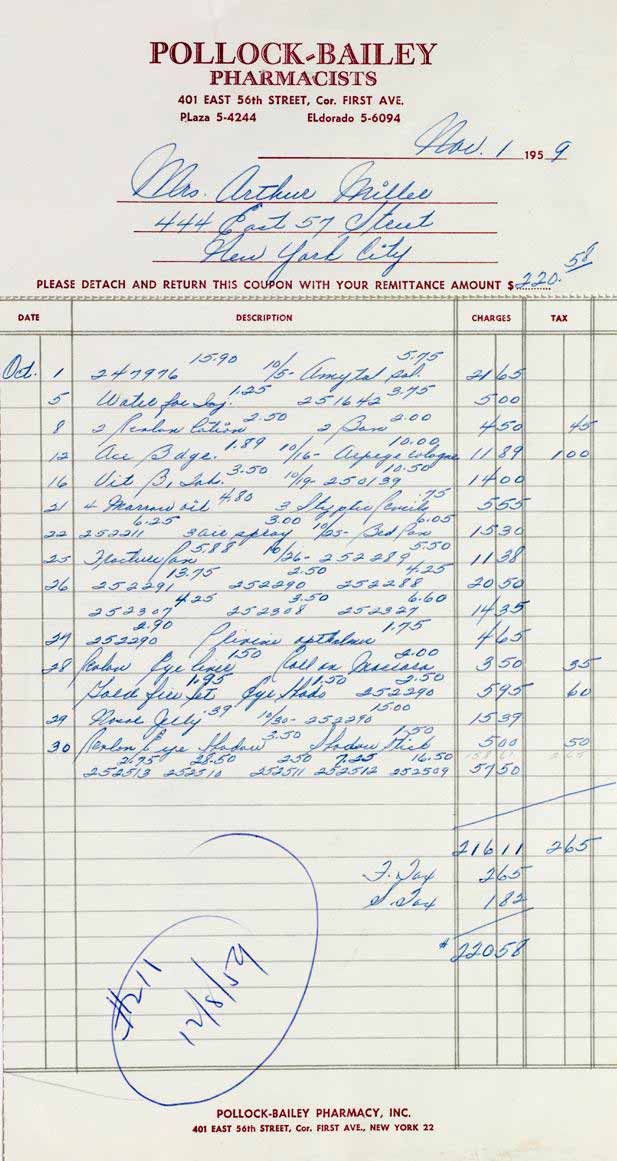 POLLOCK-BAILEY
PHARMACISTS
401 EAST 56th STREET, Cor. FIRST AVE.
PLaza 5-4244 ELdorado 5-6094
Nov. 1 1959
Mrs. Arthur Miller
444 East 57 Street
New York City
PLEASE DETACH AND RETURN THIS COUPON WITH YOUR REMITTANCE AMOUNT $220.58
DATE DESCRIPTION CHARGES TAX
Oct. 1 247976 15.90 10/5- Amytal 5.75 21 65
5 Water for Inj. 1.25 251642 3.75 5 00
8 2 Revlon Lotion 2.50 2 Ban 2.00 4 50 45
12 1.89 10/16- Arpege Cologne 10.00 11 89 1 00
16 Vit B, 3.50 10/19- 250139 10.50 14 00
21 4 Marrow oil 4.80 3 Styptic Pencils 75 5 55
22 252211 6.25 3 air spray 3.00 10/25- Bed Pan 6.05 15 30
25 Fracture Pan 5.88 10/26- 252289 5.50 11 38
26 252291 13.75 252290 2.50 252288 4.25 20 50
252307 4.25 252308 3.50 252327 6.60 14 35
29 252290 2.90 1.75 4 65
28 Revlon Eye liner 1.50 Roll on Mascara 2.00 3 50 35
1.95 Eye Shado 1.50 252290 2.50 5 95 60
29 Jelly .39 10/30- 252290 15.00 15 39
30 Revlon Eye Shadow 3.50 Shadow Stick 1.50 5 00 50
2.75 28.50 2.50 7.25 16.50
252513 252510 252511 252512 252509 57 50
216 11 2 65
F. Tax 2 65
S. Tax 1 82
$ 220 58
#211
12/8/59
POLLOCK-BAILEY PHARMACY, INC.
401 EAST 56th STREET, Cor. FIRST AVE., NEW YORK 22